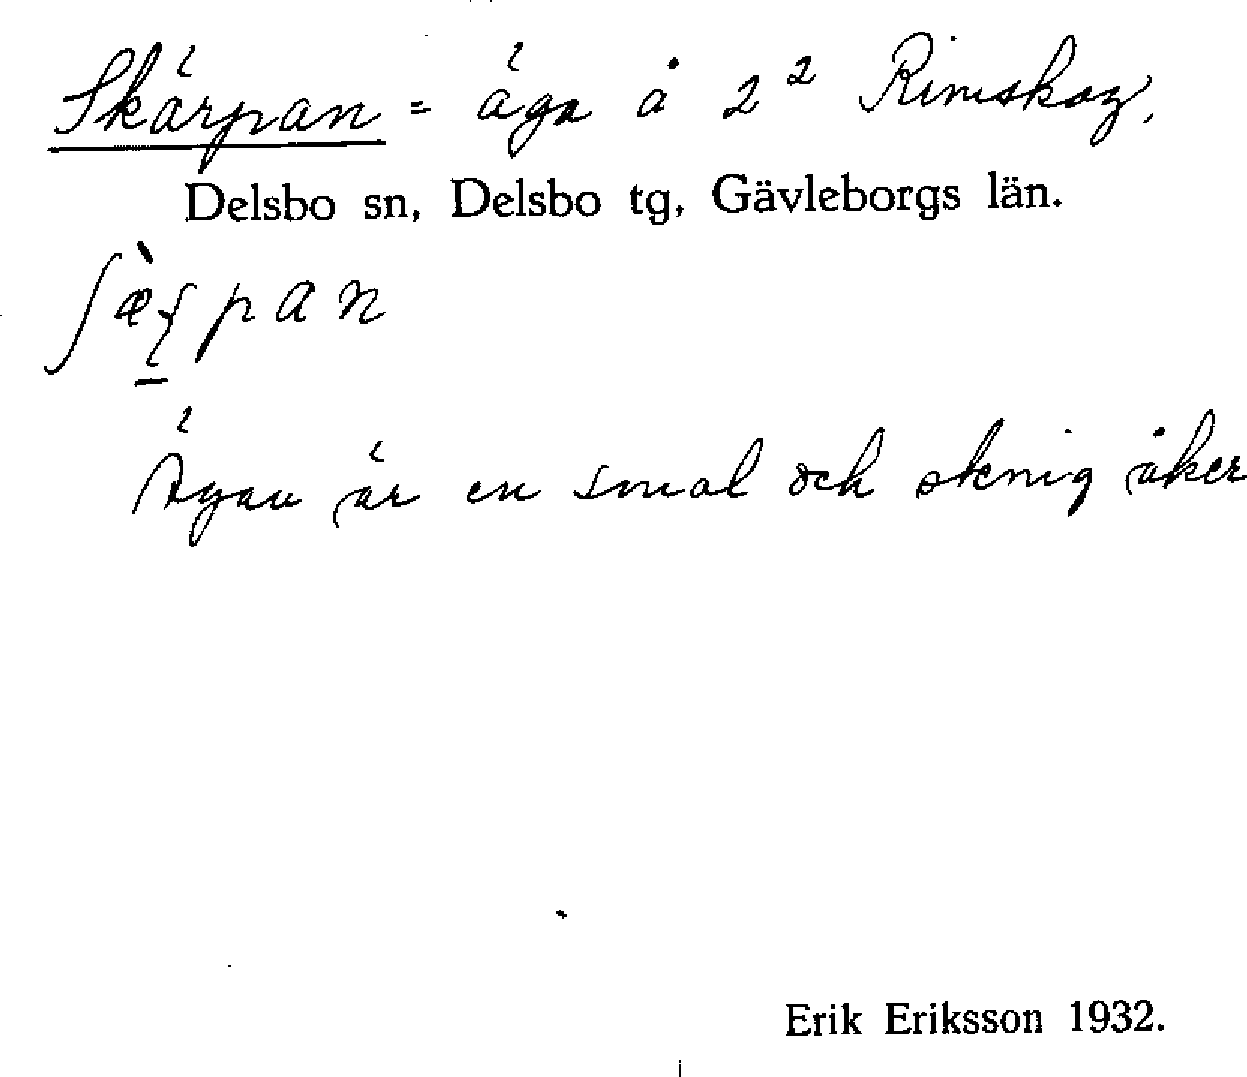 Skärpan = äga å 2² Rimskog,
Delsbo sn, Delsbo tg, Gävleborgs län.
Ägan är en smal och stenig åker
Erik Eriksson 1932.